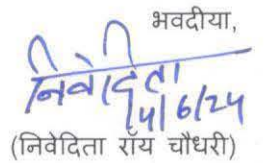 भवदीया,
निवेदिता
14/6/24
(निवेदिता रॉय चौधरी)